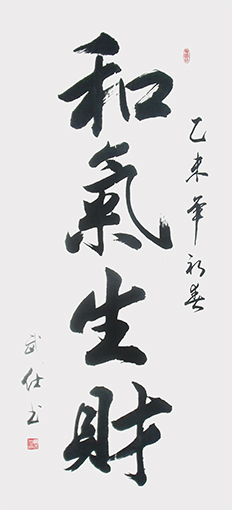 乙未年初春
和氣生財
武仕书